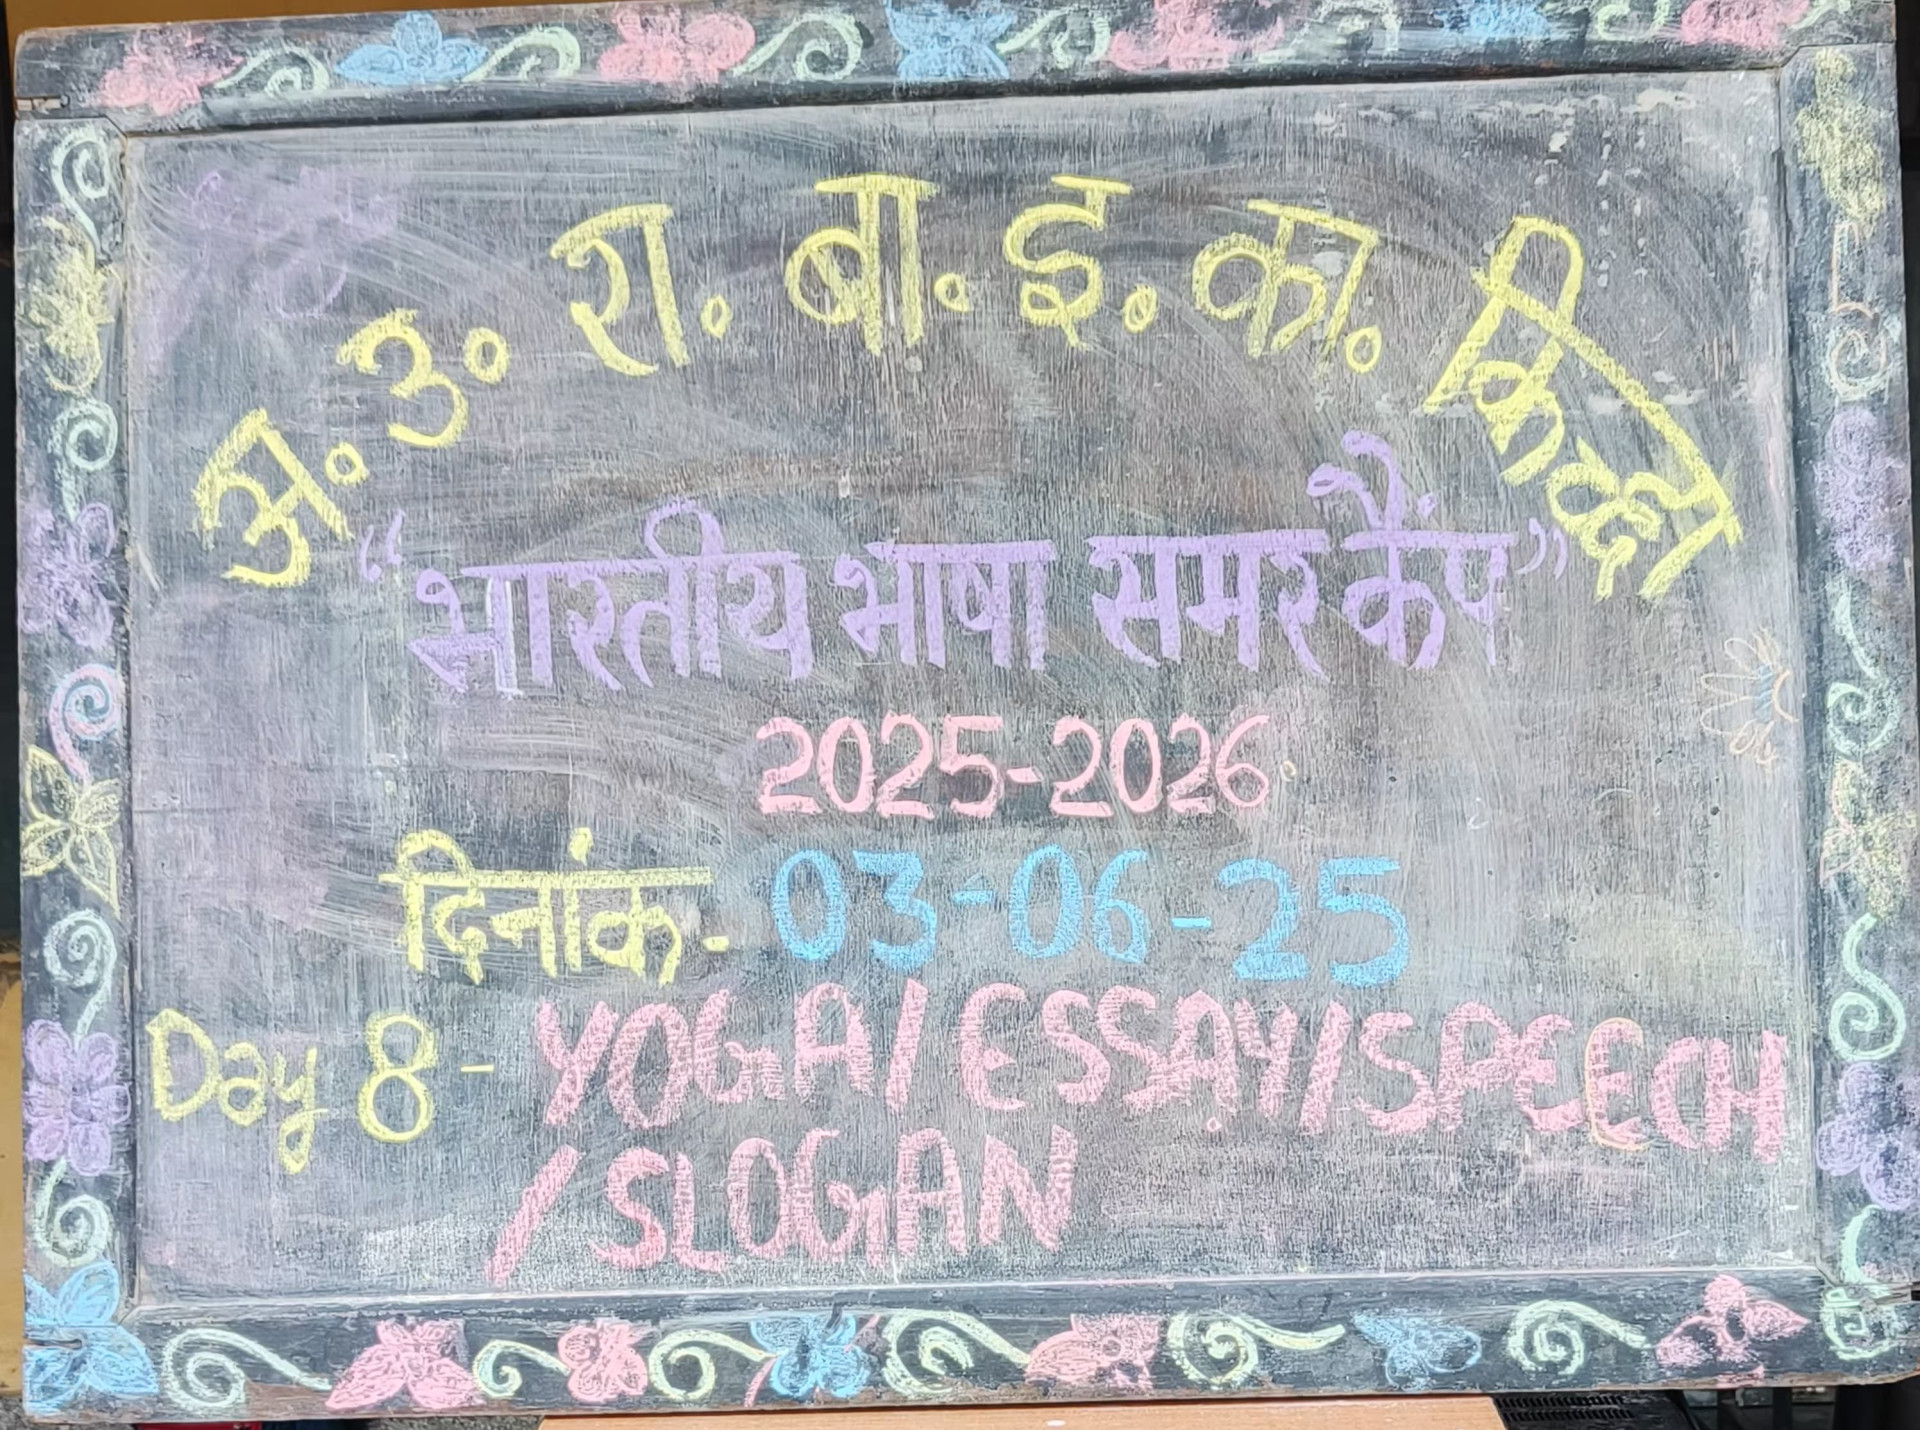 अ. उ. रा. बा. इ. का. किच्छा
“भारतीय भाषा समर कैंप”
2025-2026
दिनांक- 03-06-25
Day 8 - YOGA/ESSAY/SPEECH
/SLOGAN